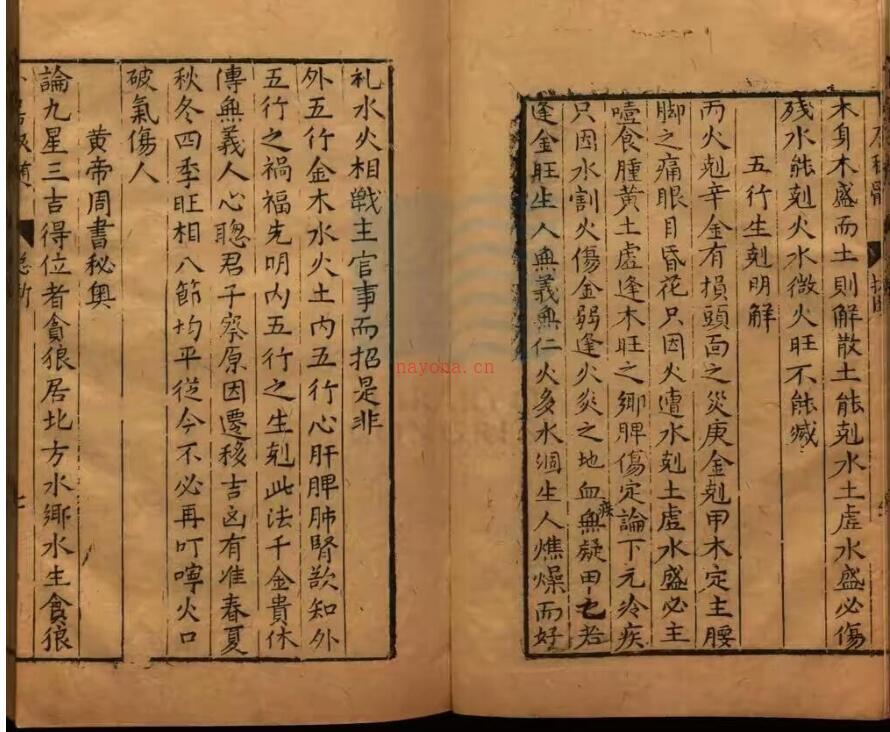 木身木盛而土則解散土能剋水土虛水盛必傷
残水能剋火水微火旺不能滅
五行生剋明解
丙火剋辛金有損頭面之災庚金剋甲木定主腰
脚之痛眼目昏花只因火遭水剋土虛水盛必主
噎食腫黃土虛逢木旺之鄉脾傷定論下元冷疾
只因水割火傷金弱逢火炎之地血無疑田七若
疾
逢金旺生人無義無仁火多水涸生人燋燥而好
礼水火相戰主官事而招是非
外五行金木水火土内五行心肝脾肺腎欲知外
五行之禍福先明内五行之生剋此法千金貴休
傳無義人心聰君子察原因遷移吉凶有准春夏
秋冬四季旺相八節均平從今不必再叮嚀火口
破氣傷人
黃帝周書秘奥
論九星三吉得位者貪狼居北方水鄉水生貪狼
nayona.cn